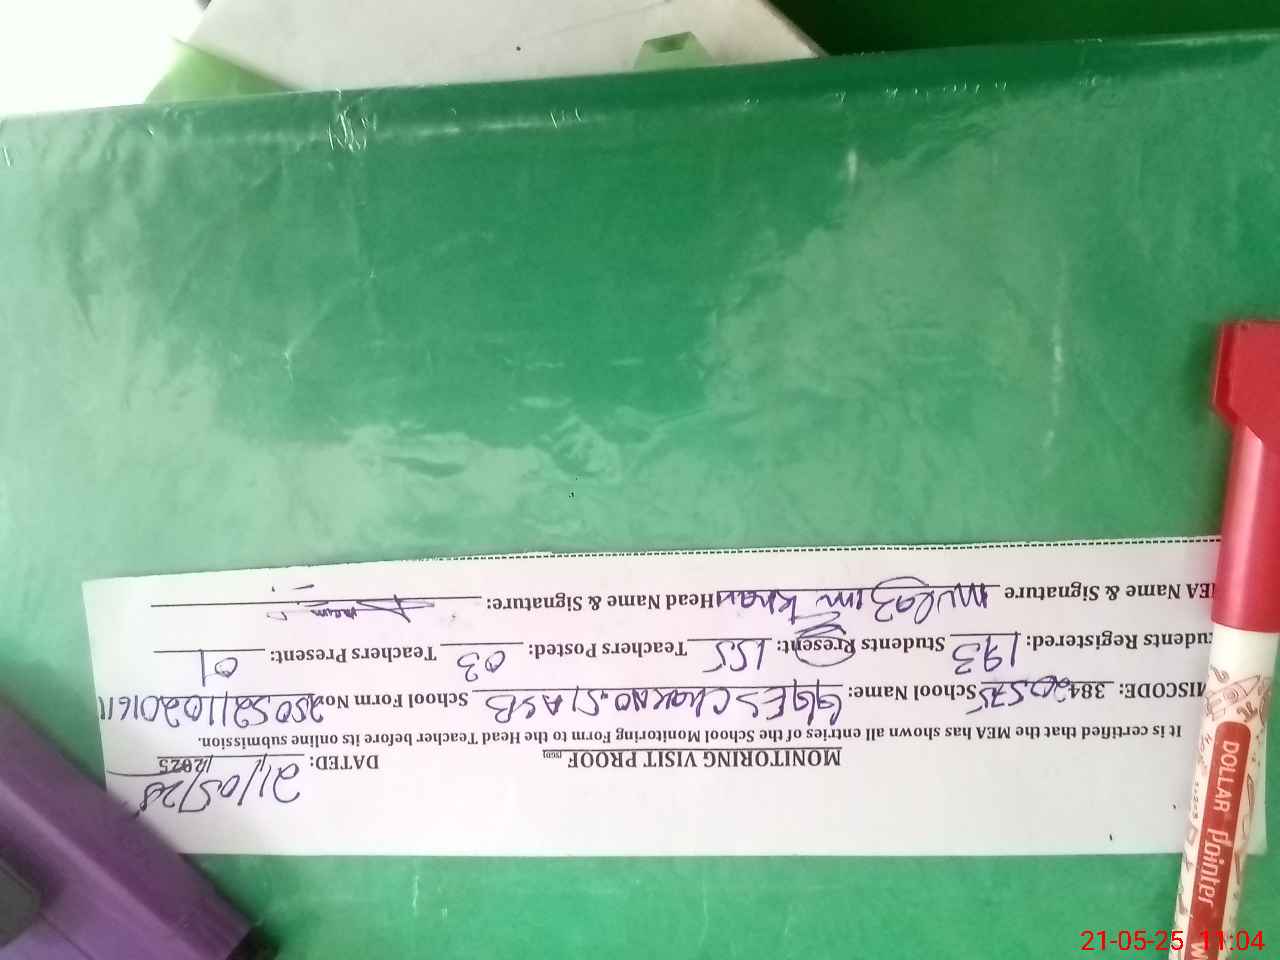 MONITORING VISIT PROOF (SGD) DATED: / /2025 21/05/25
It is certified that the MEA has shown all entries of the School Monitoring Form to the Head Teacher before its online submission.
MISCODE: 38420575 School Name: GGES Chak NO.51 ASB School Form No.
Students Registered: 193 Students Present: 155 Teachers Posted: 03 Teachers Present: 01
MEA Name & Signature Mulazim Khan Head Name & Signature:
DOLLAR Pointer
21-05-25 11:04